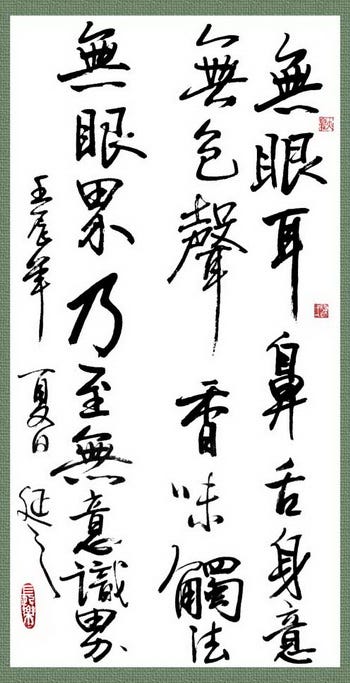 無眼耳鼻舌身意
無色聲香味觸法
無眼界乃至無意識界
壬辰年夏日